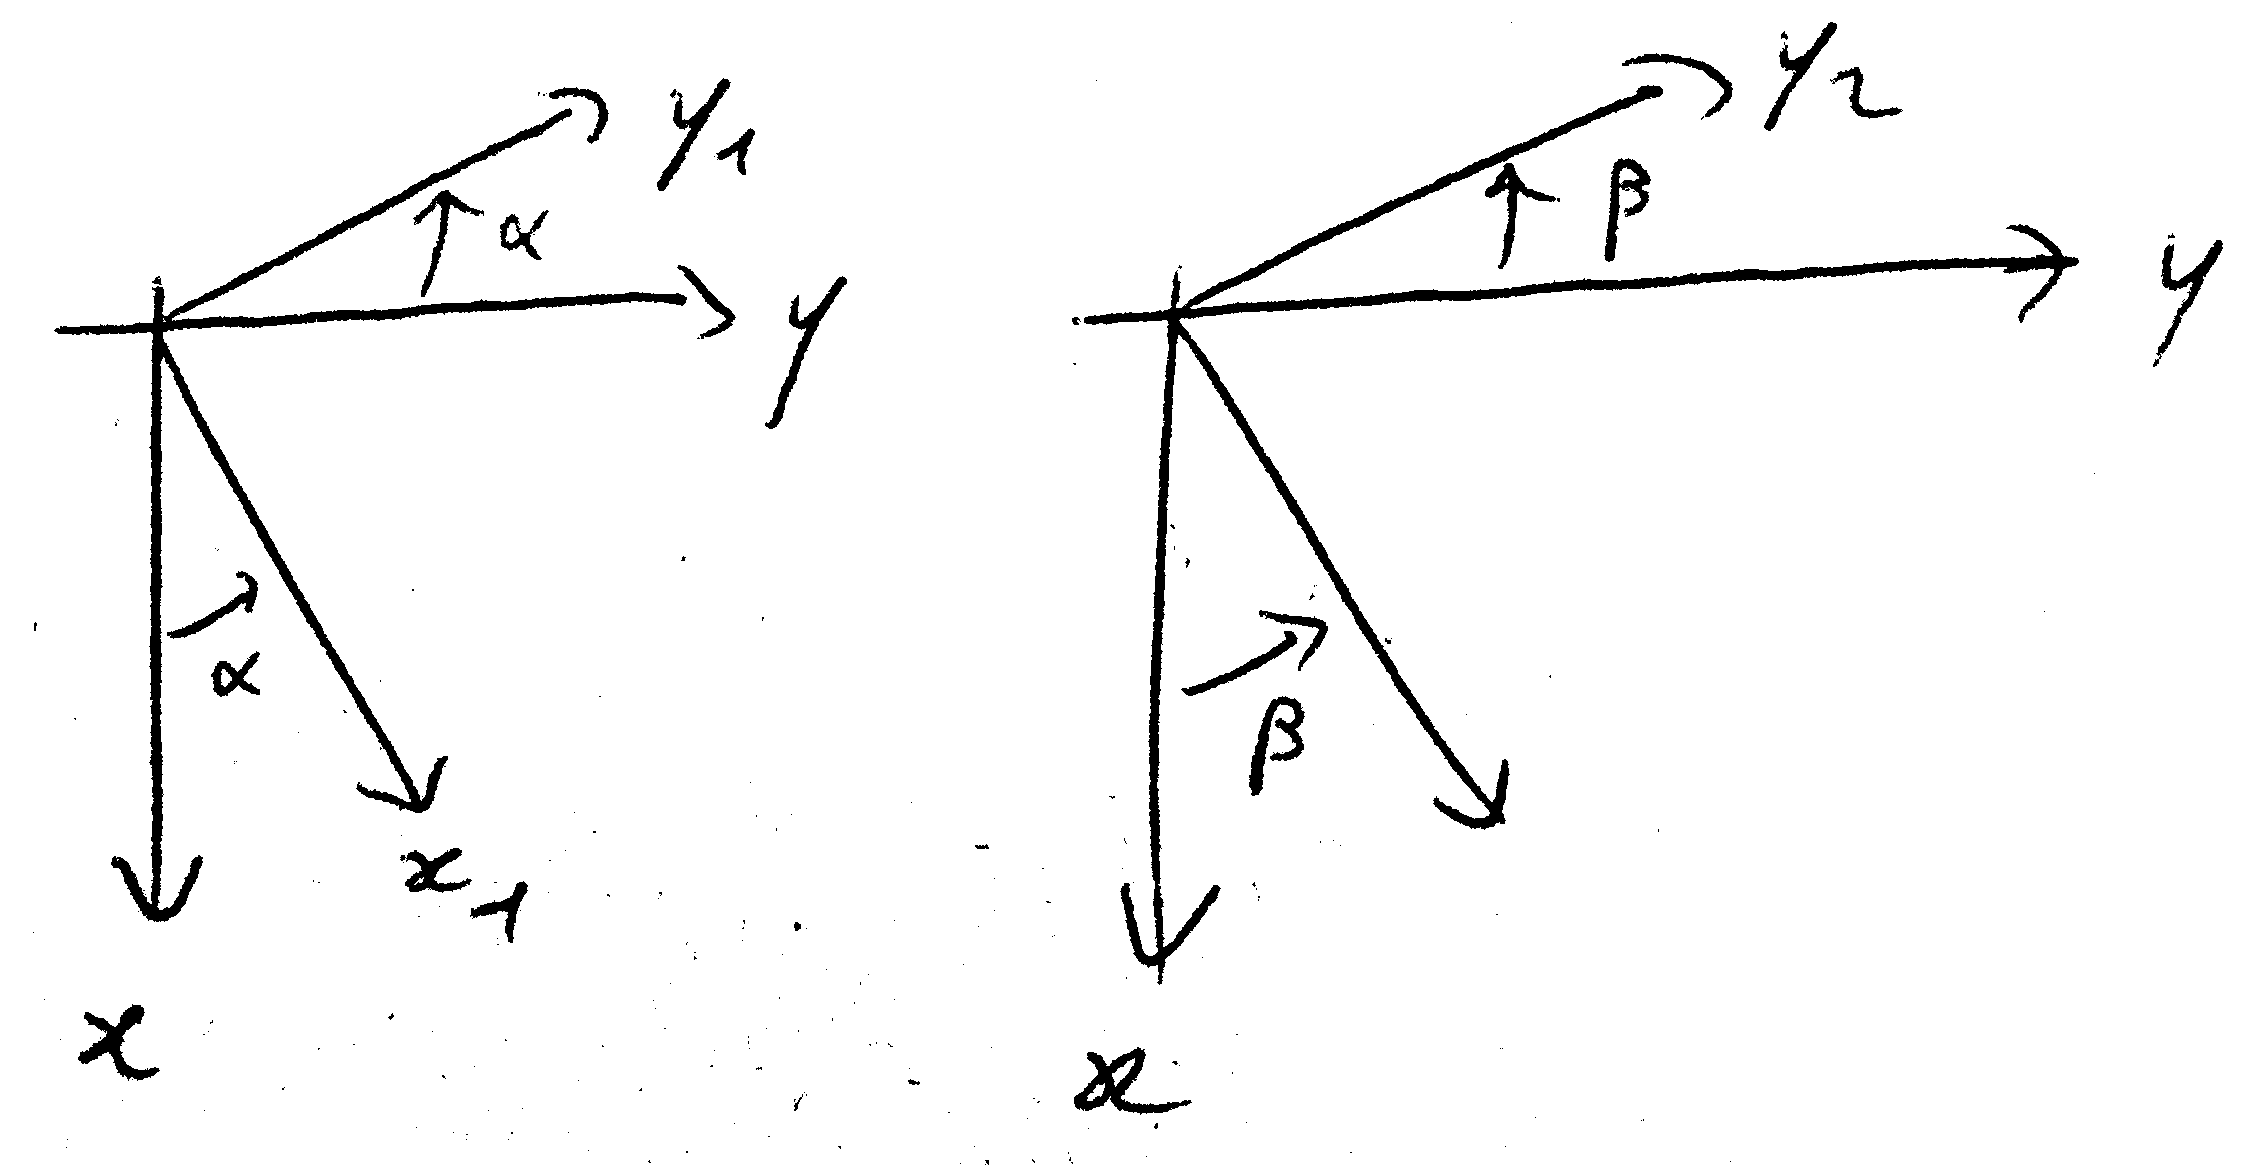 y1
α
y
α
x1
x
y2
β
y
β
x